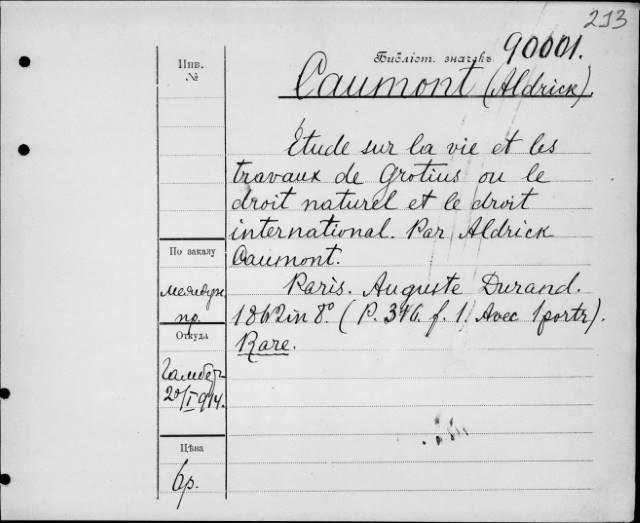 213
Библіот. значекъ 90001.
Инв.
№
Caumont (Aldrick).
Étude sur la vie et les
travaux de Grotius ou le
droit naturel et le droit
international. Par Aldrick
Caumont.
Paris. Auguste Durand.
1862 in 8°. (P. 316. f. 1. Avec 1 portr).
Rare.
По заказу
междун.
пр.
Откуда
20/I 914.
Цѣна
6 р.